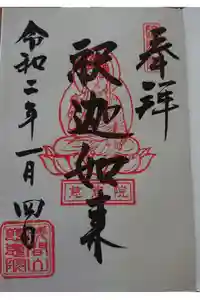 奉拝
釈迦如来
令和二年一月四日